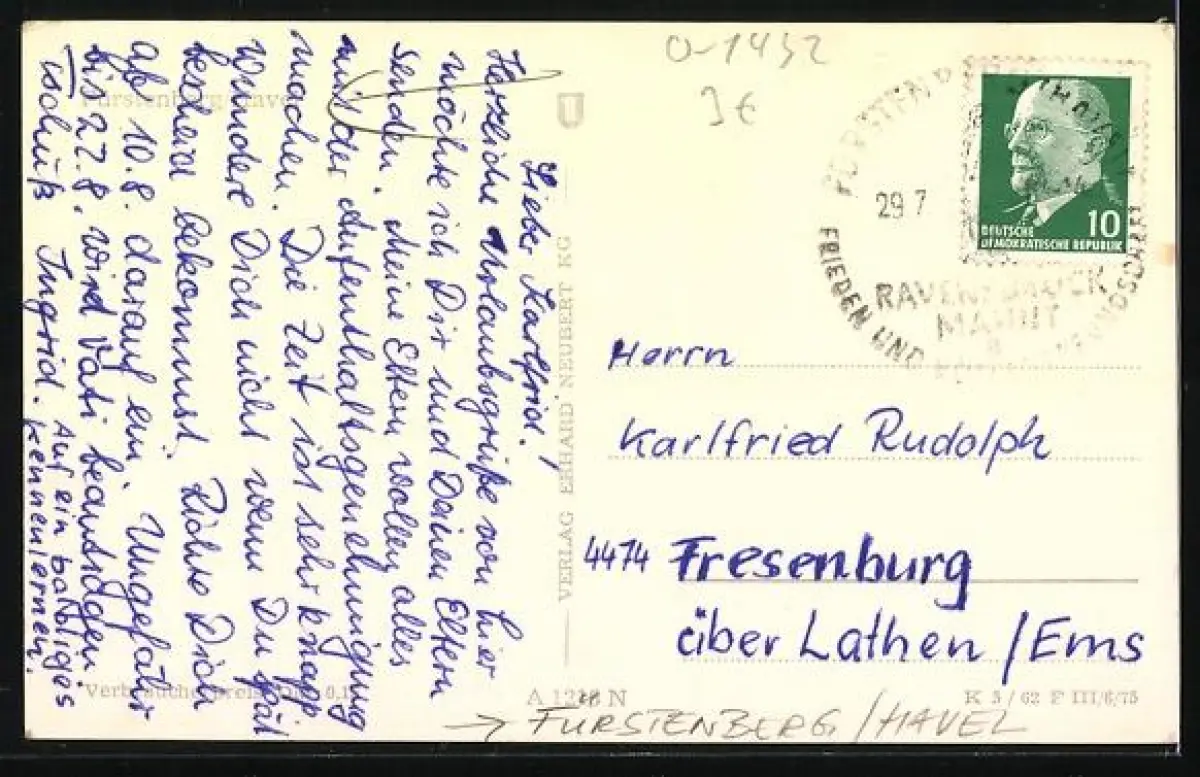 Fürstenberg/Havel
Lieber Karlfried!
Herzliche Urlaubsgrüße von hier
möchte ich Dir und Deinen Eltern
senden. Meine Eltern wollen alles
mit der Aufenthaltsgenehmigung
machen. Die Zeit ist sehr knapp
wundere Dich nicht wenn Du spät
bescheid bekommst. Richte Dich
ab 10.8. darauf ein. Ungefähr
bis 22.8. wird Vati beantragen
Tschüß Ingrid. Auf ein baldiges
kennenlernen.
Verbraucherpreis
VERLAG ERHARD NEUBERT KG
0-1432
3€
29 7
FRIEDEN UND
RAVENSBRÜCK
MAHNT
10
DEUTSCHE
DEMOKRATISCHE REPUBLIK
Herrn
Karlfried Rudolph
4474 Fresenburg
über Lathen/Ems
A 1218 N
K 5/62 F III/6/75
→ FÜRSTENBERG/HAVEL